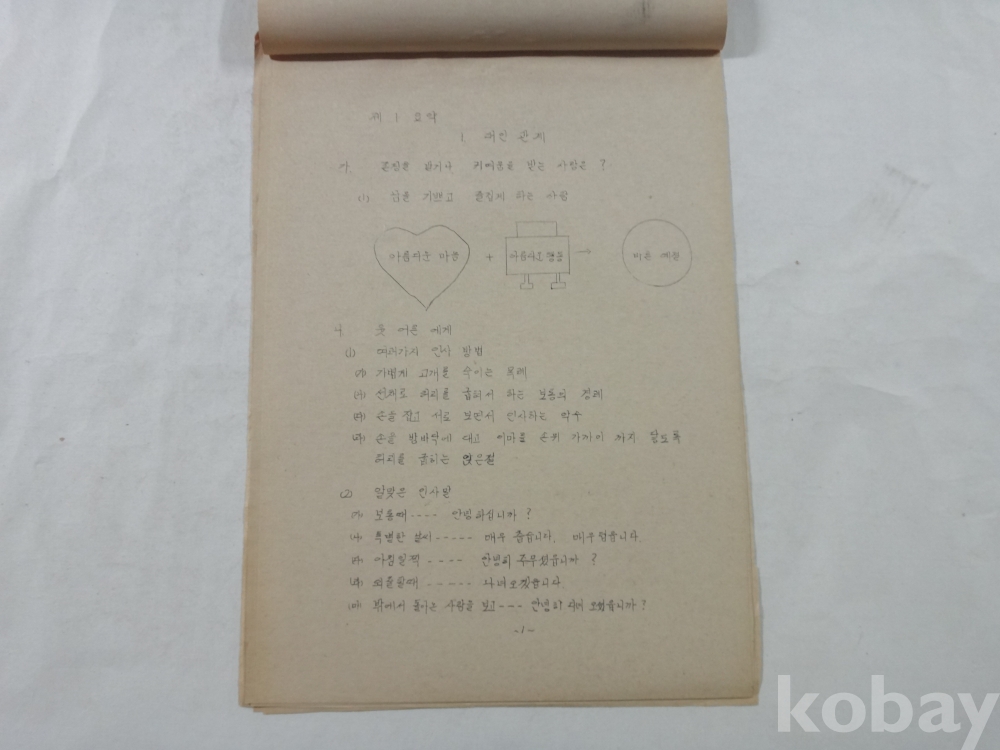 제 1 요약
1. 대인 관계
가. 존경을 받거나 귀여움을 받는 사람은 ?
(1) 남을 기쁘고 즐겁게 하는 사람
아름다운 마음 + 아름다운 행동 → 바른 예절
나. 웃 어른 에게
(1) 여러가지 인사 방법
(가) 가볍게 고개를 숙이는 목례
(나) 선채로 허리를 굽혀서 하는 보통의 경례
(다) 손을 잡고 서로 보면서 인사하는 악수
(라) 손을 방바닥에 대고 이마를 손위 가까이 까지 닿도록
허리를 굽히는 앉은절
(2) 알맞은 인사말
(가) 보통때 ---- 안녕하십니까 ?
(나) 특별한 날씨 ----- 매우 춥습니다. 매우 덥습니다.
(다) 아침일찍 ---- 안녕히 주무셨습니까 ?
(라) 외출할때 ----- 다녀오겠습니다
(마) 밖에서 들어온 사람을 보고 --- 안녕히 다녀 오셨습니까 ?
-1-
kobay